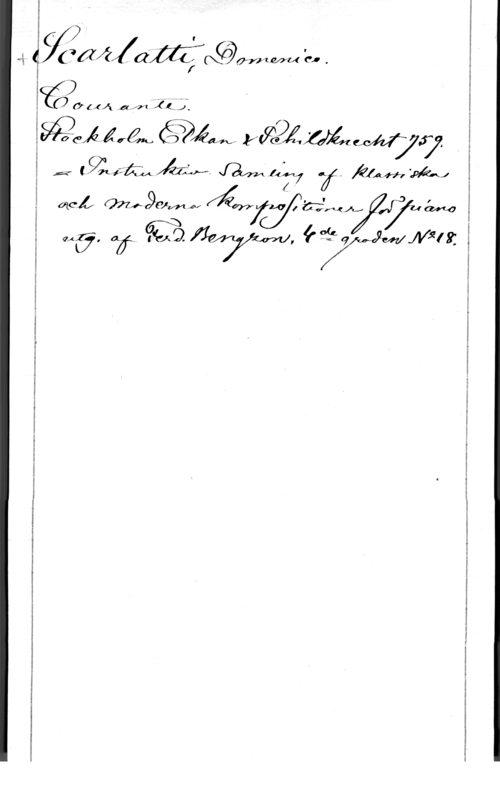 Scarlatti, Domenico.
Courante.
Stockholm Elkan & Schildknecht 759.
= Instruktiv Samling af klassiska
och moderna kompositioner för piano
utg. af Ferd. Bengzon, 4de graden No 18.